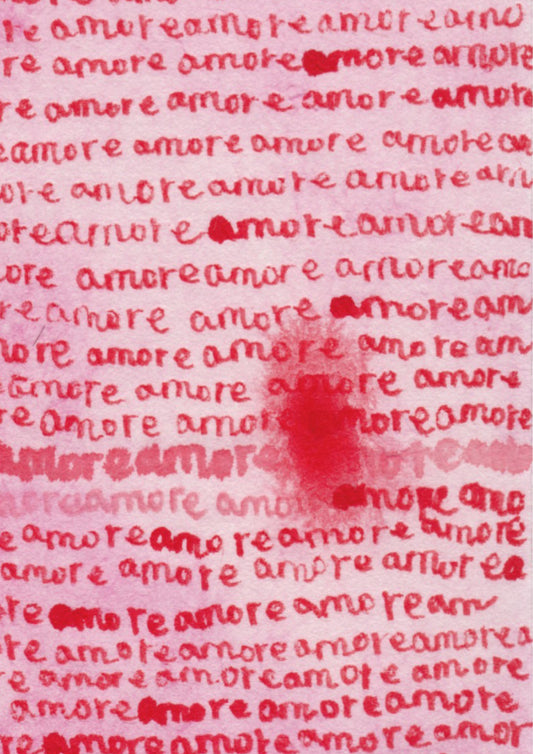 re amoreamore amoreamo
re amore amore amore amore
re amore amore amore amore
eamore amore amore amorea
ore amoreamore amorea
oreamore amoreamorea
ore amoreamore amoreamo
reamore amore amoream
more amore amore amoream
amore amore amore amore
re amore amor moreamore
amoreamore
oreamore amo amore amo
e amoreamo reamore amore
amore amore amore amorea
re amo reamore amoream
re amoreamore amoreamorea
e amore amoreamore amore
amoreamore amoreamore
re amoreamore amoreamor